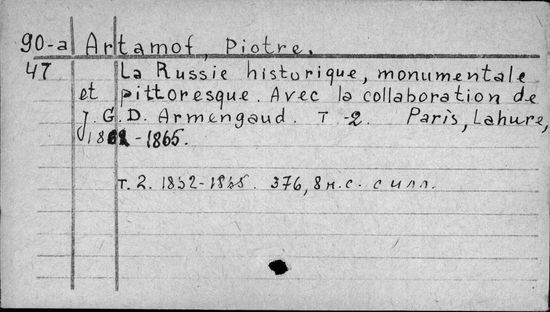 90-a Artamof, Piotre.
47 La Russie historique, monumentale
et pittoresque. Avec la collaboration de
J. G. D. Armengaud. T -2. Paris, Lahure,
1862-1865.
T. 2. 1852-1865. 376, 8 н. с. с илл.